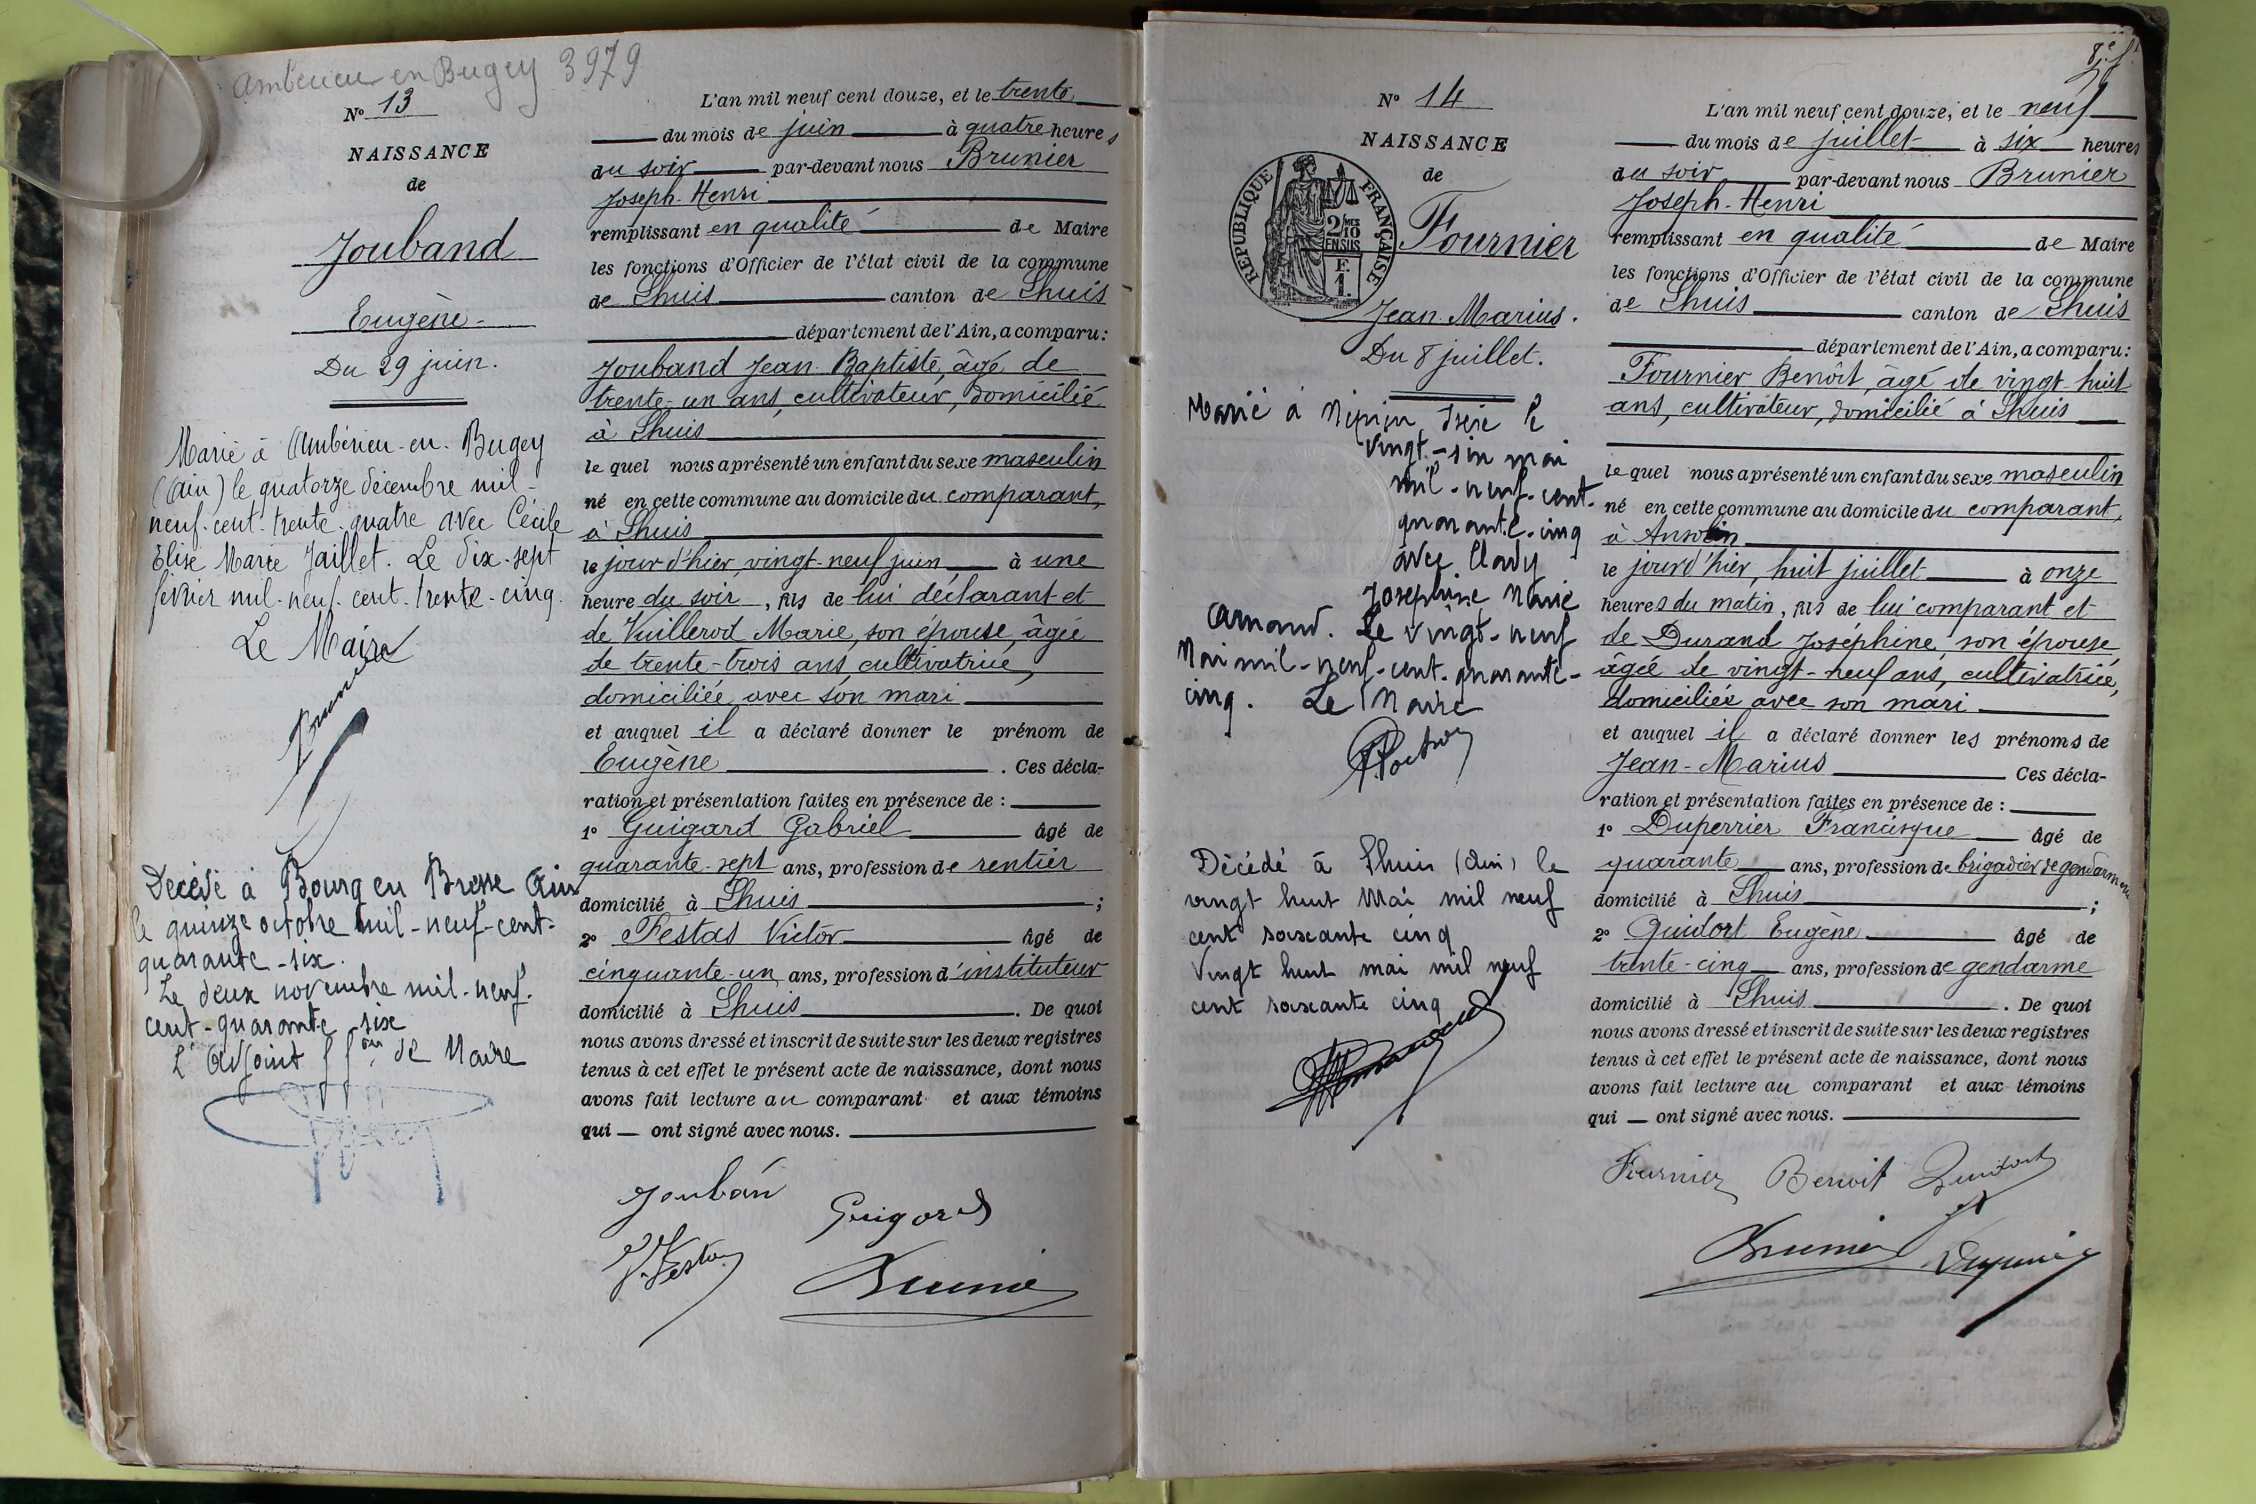 Ambérieu en Bugey 3979
N° 13
NAISSANCE
de
Jouband
Eugène.
Du 29 juin.
Marié à Ambérieu-en-Bugey
(Ain) le quatorze décembre mil-
neuf-cent-trente-quatre avec Cécile
Elise Marie Jaillet. Le dix-sept
février mil-neuf-cent-trente-cinq.
Le Maire
Brunier
Décédé à Bourg en Bresse Ain
le quinze octobre mil-neuf-cent-
quarante-six.
Le deux novembre mil-neuf-
cent-quarante six
L'Adjoint ff on de Maire
L'an mil neuf cent douze, et le trente
du mois de juin à quatre heures
du soir par-devant nous Brunier
Joseph-Henri
remplissant en qualité de Maire
les fonctions d'Officier de l'état civil de la commune
de Lhuis canton de Lhuis
département de l'Ain, a comparu:
Jouband Jean Baptiste, âgé de
trente-un ans, cultivateur, domicilié
à Lhuis
le quel nous a présenté un enfant du sexe masculin
né en cette commune au domicile du comparant,
à Lhuis
le jour d'hier, vingt-neuf juin, à une
heure du soir, fils de lui déclarant et
de Vuillerod Marie, son épouse, âgée
de trente-trois ans, cultivatrice,
domiciliée avec son mari
et auquel il a déclaré donner le prénom de
Eugène. Ces décla-
ration et présentation faites en présence de :
1° Guigard Gabriel âgé de
quarante-sept ans, profession de rentier
domicilié à Lhuis ;
2° Festas Victor âgé de
cinquante-un ans, profession d'instituteur
domicilié à Lhuis. De quoi
nous avons dressé et inscrit de suite sur les deux registres
tenus à cet effet le présent acte de naissance, dont nous
avons fait lecture au comparant et aux témoins
qui — ont signé avec nous.
Jouban
Guigard
V. Festas
Brunier
8e f.
N° 14
NAISSANCE
de
RÉPUBLIQUE FRANÇAISE
2/10MES
EN SUS
F.
1.
Fournier
Jean-Marius.
Du 8 juillet.
Marié à Isère le
vingt-six mai
mil-neuf-cent-
quarante-cinq
avec Clady
Joséphine Marie
Armand. Le vingt-neuf
Mai mil-neuf-cent-quarante-
cinq. Le Maire
Décédé à Lhuis (Ain) le
vingt huit Mai mil neuf
cent soixante cinq
Vingt huit mai mil neuf
cent soixante cinq
L'an mil neuf cent douze, et le neuf
du mois de juillet à six heures
du soir par-devant nous Brunier
Joseph-Henri
remplissant en qualité de Maire
les fonctions d'Officier de l'état civil de la commune
de Lhuis canton de Lhuis
département de l'Ain, a comparu:
Fournier Benoît, âgé de vingt-huit
ans, cultivateur, domicilié à Lhuis
le quel nous a présenté un enfant du sexe masculin
né en cette commune au domicile du comparant,
à Ansolin
le jour d'hier, huit juillet à onze
heures du matin, fils de lui comparant et
de Durand Joséphine, son épouse
âgée de vingt-neuf ans, cultivatrice,
domiciliée avec son mari
et auquel il a déclaré donner les prénoms de
Jean-Marius Ces décla-
ration et présentation faites en présence de :
1° Duperrier Francisque âgé de
quarante ans, profession de brigadier de gendarmerie
domicilié à Lhuis ;
2° Quidort Eugène âgé de
trente-cinq ans, profession de gendarme
domicilié à Lhuis. De quoi
nous avons dressé et inscrit de suite sur les deux registres
tenus à cet effet le présent acte de naissance, dont nous
avons fait lecture au comparant et aux témoins
qui — ont signé avec nous.
Fournier Benoit Quidort
Brunier Duperrier